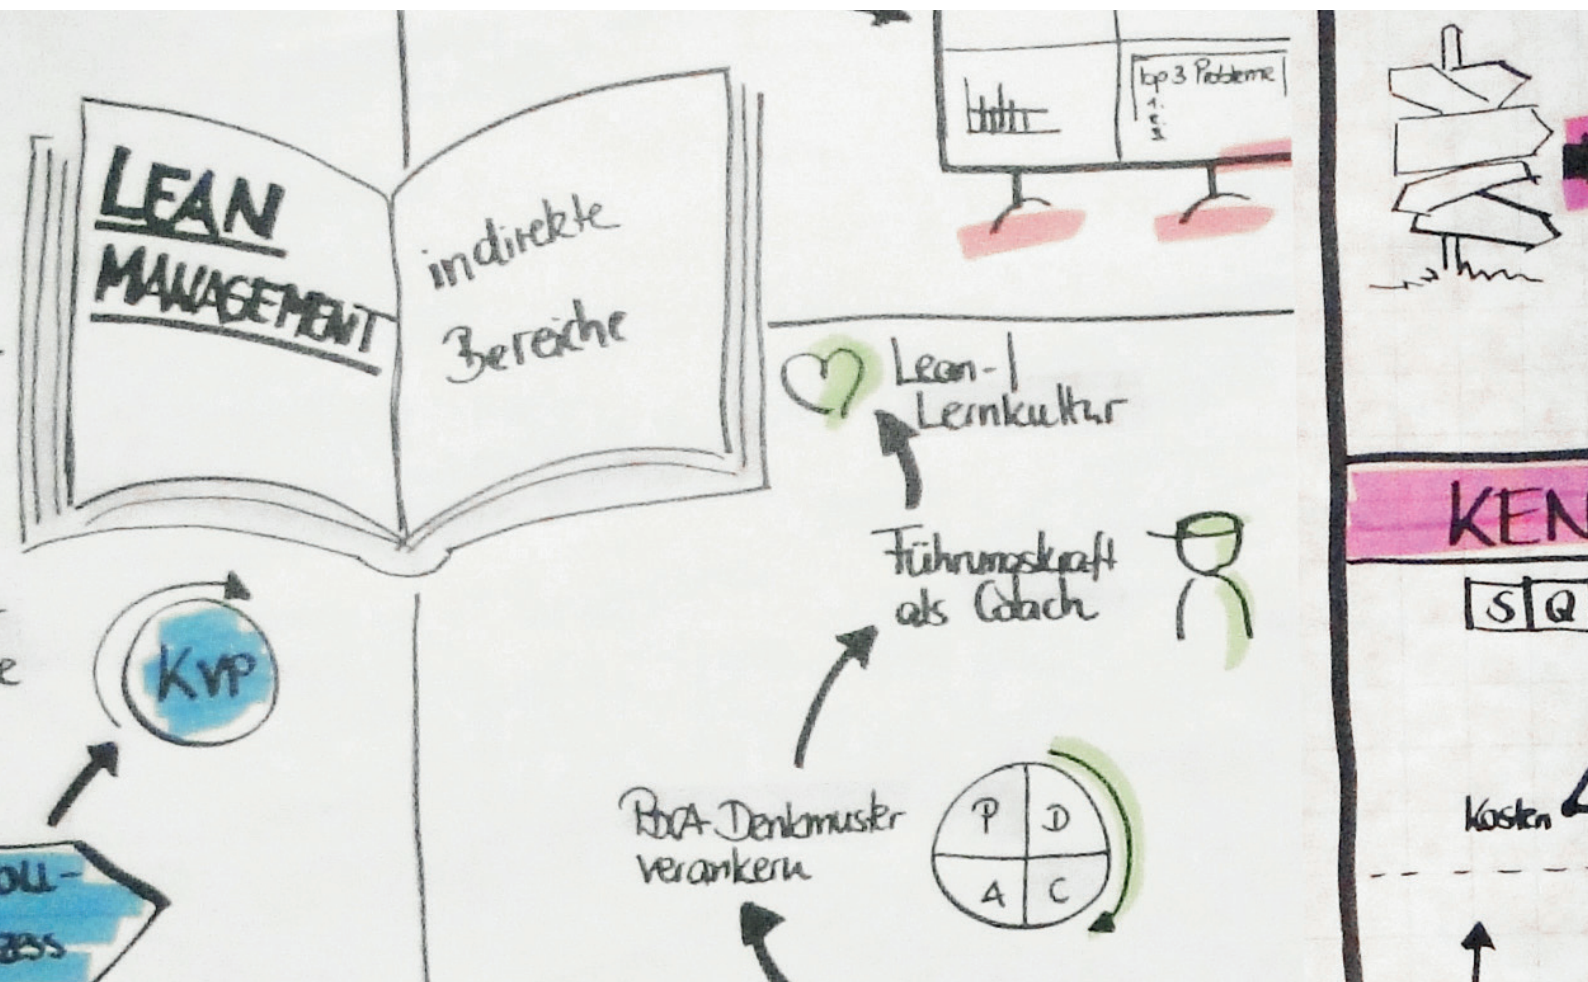 LEAN
MANAGEMENT
indirekte
Bereiche
Top 3 Probleme
1.
2.
3.
Lean-
Lernkultur
Führungskraft
als Coach
KVP
PDCA-Denkmuster
verankern
P D
A C
KEN
S Q
Kosten